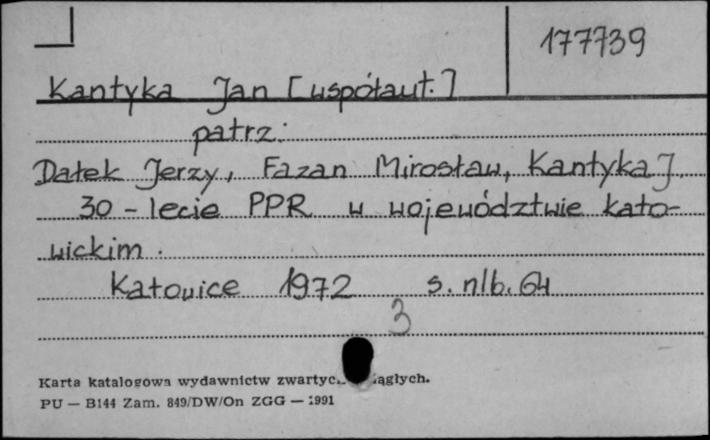 177739
Kantyka Jan [współaut.]
patrz:
Dałek Jerzy, Fazan Mirosław, Kantyka J.
30-lecie PPR w województwie kato-
wickim.
Katowice 1972 s. nlb. 64
3
Karta katalogowa wydawnictw
PU — B144 Zam. 849/DW/On ZGG — 1991